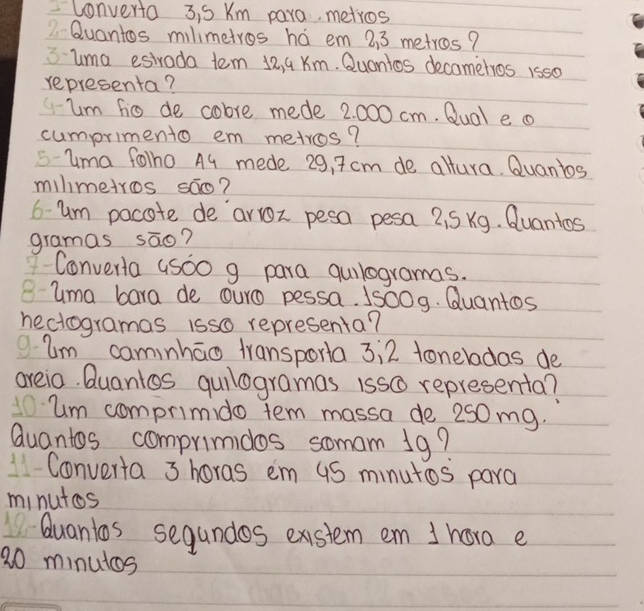 1-Converta 3,5 Km para metros
2-Quantos milimetros há em 2,3 metros?
3-Uma estrada tem 12,4 Km. Quantos decametros isso
representa?
4-Um fio de cobre mede 2.000 cm. Qual e o
cumprimento em metros?
5-Uma folha A4 mede 29,7 cm de altura. Quantos
milimetros são?
6-Um pacote de arroz pesa pesa 2,5 Kg. Quantos
gramas são?
7-Converta 4500 g para quilogramas.
8-Uma bara de ouro pessa 1500g. Quantos
hectogramas isso representa?
9-Um caminhão transporta 3,2 toneladas de
areia. Quantos quilogramas isso representa?
10-Um comprimido tem massa de 250 mg.
Quantos comprimidos somam 1g?
11-Converta 3 horas em 45 minutos para
minutos
12-Quantos segundos existem em 1 hora e
20 minutos